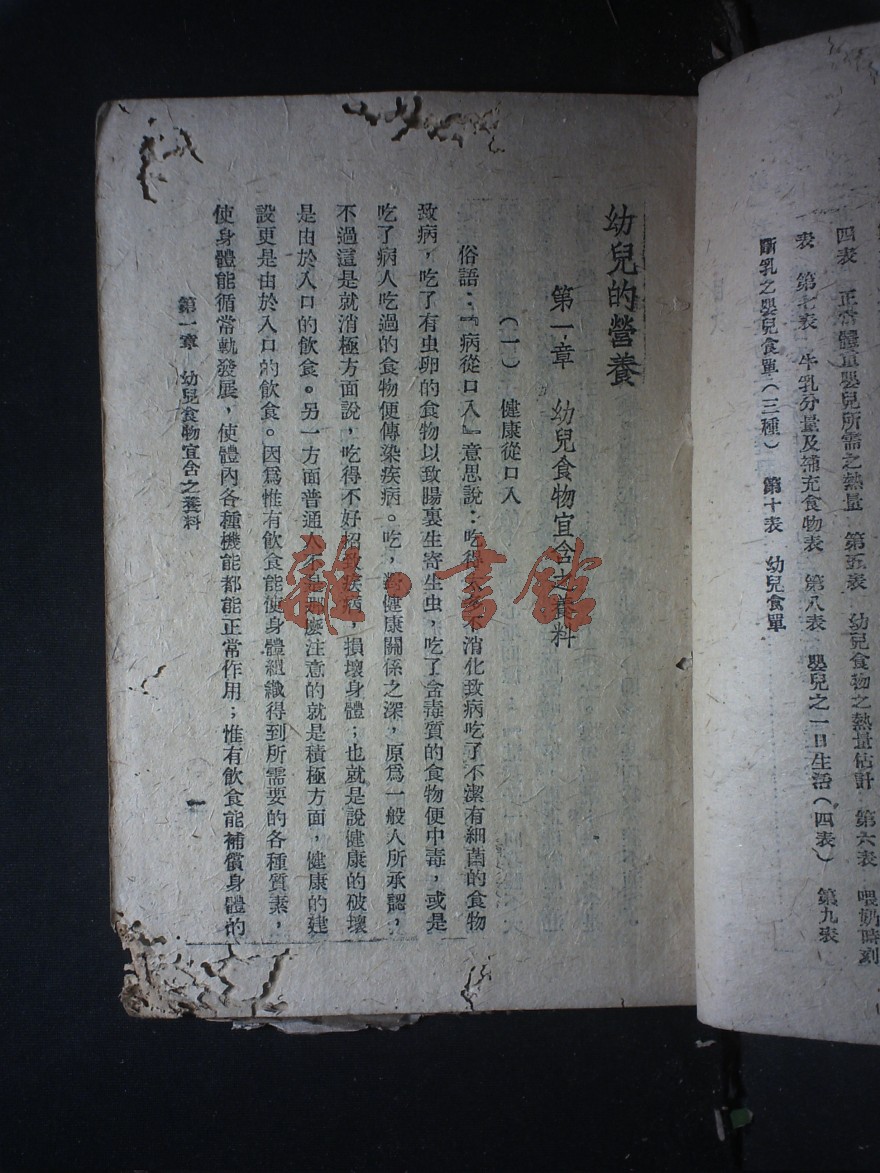 四表　正常體重嬰兒所需之熱量　第五表　幼兒食物之熱量估計　第六表　喂奶時刻
表　第七表　牛乳分量及補充食物表　第八表　嬰兒之一日生活（四表）　第九表
斷乳之嬰兒食單（三種）　第十表　幼兒食單
幼兒的營養
第一章　幼兒食物宜含之養料
（一）　健康從口入
俗語：『病從口入』意思說：吃得太多不消化致病吃了不潔有細菌的食物
致病，吃了有虫卵的食物以致腸裏生寄生虫，吃了含毒質的食物便中毒，或是
吃了病人吃過的食物便傳染疾病。吃，對健康關係之深，原爲一般人所承認，
不過這是就消極方面說，吃得不好招致疾病，損壞身體；也就是說健康的破壞
是由於入口的飲食。另一方面普通人不是那麼注意的就是積極方面，健康的建
設更是由於入口的飲食。因爲惟有飲食能使身體組織得到所需要的各種質素，
使身體能循常軌發展，使體內各種機能都能正常作用；惟有飲食能補償身體的
第一章　幼兒食物宜含之養料
一
雜·書館